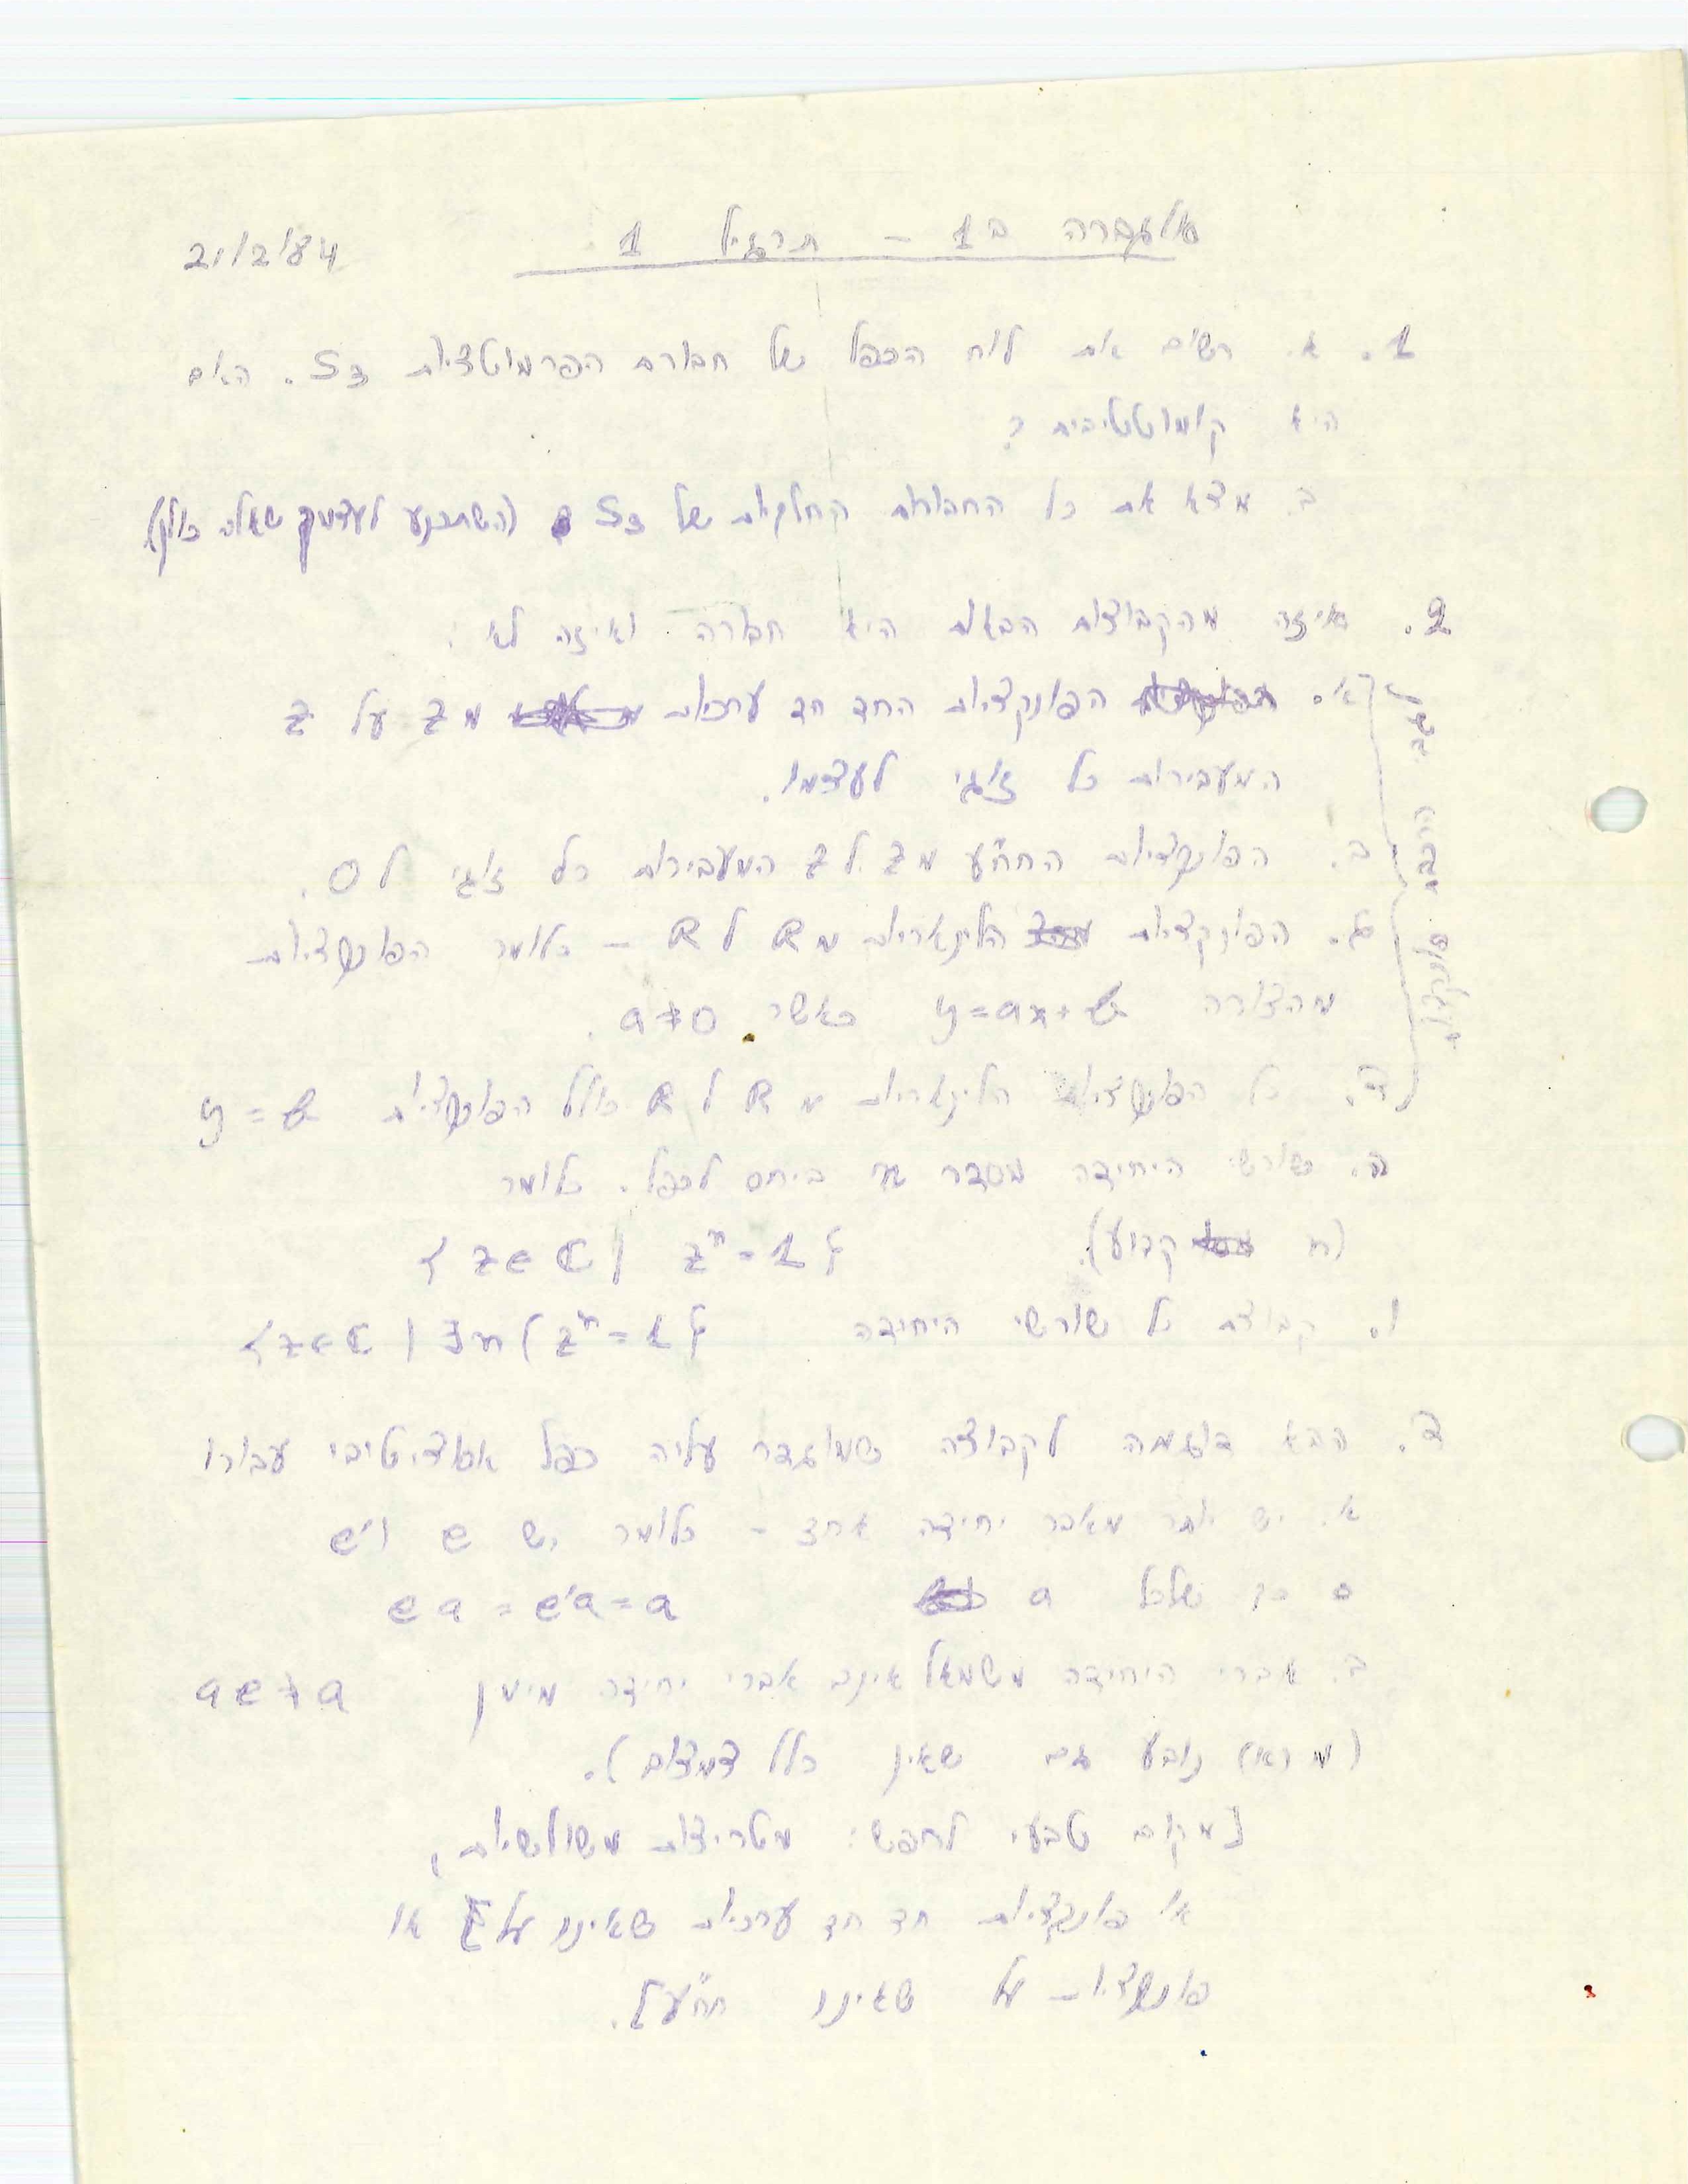 אלגברה ב1 – תרגיל 1 21/2/84
1. א. רשום את לוח הכפל של חבורת הפרמוטציות S3. האם
היא קומוטטיבית?
ב. מצא את כל החבורות החלקיות של S3 (השתכנע לעצמך שאלה כולן)
2. איזה מהקבוצות הבאות היא חבורה ואיזה לא:
א. הפונקציות החד חד ערכיות מ Z על Z
המעבירות כל זוגי לעצמו.
ב. הפונקציות החח"ע מ Z ל Z המעבירות כל זוגי ל 0.
ג. הפונקציות הלינאריות מ R ל R – כלומר הפונקציות
מהצורה y=ax+b כאשר a≠0.
ד. כל הפונקציות הלינאריות מ R ל R כולל הפונקציות y=b
ה. שורשי היחידה מסדר n ביחס לכפל. כלומר
(n קבוע). {z∈C | zⁿ=1}
ו. קבוצת כל שורשי היחידה {z∈C | ∃n) zⁿ=1}
הרכבת פונקציות
ד. הבא דוגמה לקבוצה שמוגדר עליה כפל אסוציטיבי עבורו
א. יש יותר מאבר יחידה אחד – כלומר יש e ו e'
כך שלכל a ea=e'a=a
ב. אברי היחידה משמאל אינם אברי יחידה מימין ae≠a
(מ (א) נובע גם שאין כלל צמצום).
[מקום טבעי לחפש: מטריצות משולשיות,
או פונקציות חד חד ערכיות שאינן על או
פונקציות על שאינן חח"ע].